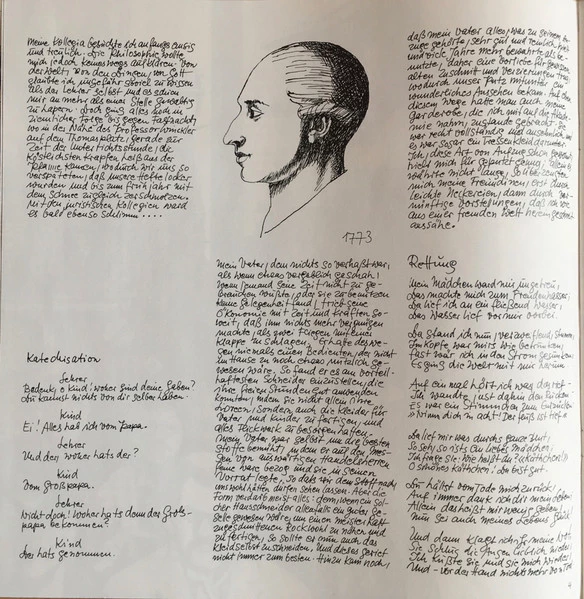 Meine Kollegia besuchte ich anfangs emsig
und treulich. Die Philosophie wollte
mich jedoch keineswegs aufklären. Von
der Welt, von den Dingen, von Gott
glaubte ich ungefähr soviel zu wissen
als der Lehrer selbst und es schien
mir an mehr als einer Stelle gewaltig
zu hapern. Doch ging alles noch in
ziemlicher Folge bis gegen Fastnacht,
wo in der Nähe des Professor Winckler
auf dem Thomasplatz, gerade zur
Zeit der Unterrichtsstunde, die
köstlichsten Krapfen heiß aus der
Pfanne kamen, wodurch wir uns so
verspäteten, daß unsere Hefte locker
wurden und bis zum Frühjahr mit
dem Schnee zugleich zerschmolzen.
Mit den juristischen Kollegien ward
es bald ebenso schlimm....
Katechisation
Lehrer
Bedenk, o Kind! woher sind deine Gaben?
Du kannst nichts von dir selber haben.
Kind
Ei! Alles hab ich vom Papa.
Lehrer
Und der woher hats der?
Kind
Vom Großpapa.
Lehrer
Nicht doch! Woher hats denn der Groß-
papa bekommen?
Kind
Der hats genommen.
1773
Mein Vater, dem nichts so verhaßt war,
als wenn etwas vergeblich geschah,
wenn jemand seine Zeit nicht zu ge-
brauchen wußte, oder sie zu benutzen
keine Gelegenheit fand, trieb seine
Ökonomie mit Zeit und Kräften so
weit, daß ihm nichts mehr Vergnügen
machte, als zwei Fliegen mit einer
Klappe zu schlagen. Er hatte deswe-
gen niemals einen Bedienten, der nicht
im Hause zu noch etwas nützlich ge-
wesen wäre. So fand er es am vorteil-
haftesten Schneider einzustellen, die
ihre freien Stunden gut anwenden
konnten, indem sie nicht allein ihre
Livreen, sondern auch die Kleider für
Vater und Kinder zu fertigen, und
alles Flickwerk zu besorgen hatten.
Mein Vater war selbst um die besten
Stoffe bemüht, indem er auf den Mes-
sen von auswärtigen Handelsherren
feine Ware bezog und sie in seinen
Vorrat legte, so daß wir dem Stoff nach
uns wohl hätten dürfen sehen lassen. Aber die
Form verdarb meist alles: denn wenn ein sol-
cher Hausschneider allenfalls ein guter Ge-
selle gewesen wäre, um einen meisterhaft
zugeschnittenen Rock wohl zu nähen und
zu fertigen, so sollte er nun auch das
Kleid selbst zuschneiden. Und dieses geriet
nicht immer zum besten. Hinzu kam noch,
daß mein Vater alles, was zu seinem An-
zuge gehörte, sehr gut und reinlich hielt
und viele Jahre mehr bewahrte als be-
nutzte, daher eine Vorliebe für gewissen
alten Zuschnitt und Verzierungen trug,
wodurch unser Putz mitunter ein
wunderliches Aussehen bekam. Auf eben
diesem Wege hatte man auch meine
Garderobe, die ich mit auf die Akade-
mie nahm, zustande gebracht: sie
war recht vollständig und ansehnlich, und
es war sogar ein Tressenkleid darunter.
Ich, diese Art von Aufzug schon gewohnt,
hielt mich für geputzt genug; allein es
währte nicht lange, so überzeugten
mich meine Freundinnen, erst durch
leichte Neckereien, dann durch ver-
nünftige Vorstellungen, daß ich wie
aus einer fremden Welt hereingeschneit
aussähe.
Rettung
Mein Mädchen ward mir ungetreu,
Das machte mich zum Freudenhasser,
Da lief ich an ein fließend Wasser,
Das Wasser lief vor mir vorbei.
Da stand ich nun, verzweifelnd, stumm,
Im Kopfe war mirs wie betrunken,
Fast wär ich in den Strom gesunken,
Es ging die Welt mit mir herum.
Auf einmal hört ich was, das rief -
Ich wandte just dahin den Rücken -
Es war ein Stimmchen zum Entzücken:
»Nimm dich in acht! Der Fluß ist tief«
Da lief mir was durchs ganze Blut,
Ich seh, so ists ein liebes Mädchen;
Ich frage sie: Wie heißt du? »Käthchen!«
O schönes Käthchen! Du bist gut.
Du hältst vom Tode mich zurück,
Auf immer dank ich dir mein Leben;
Allein das heißt mir wenig geben,
Nun sei auch meines Lebens Glück!
Und dann klagt ich ihr meine Not,
Sie schlug die Augen lieblich nieder;
Ich küßte sie und sie mich wieder,
Und - vor der Hand nichts mehr von Tod.